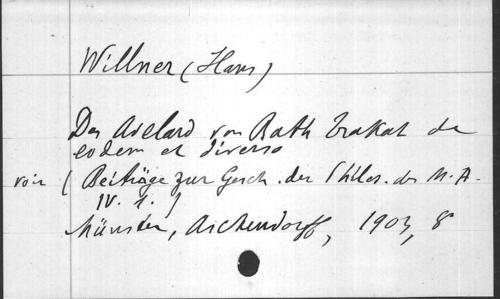 Willner (Hans)
Des Adelard von Bath Traktat de
eodem et diverso
voir (Beiträge zur Gesch. der Philos. des M.A.
IV. 1.)
Münster, Aschendorff, 1903, 8°